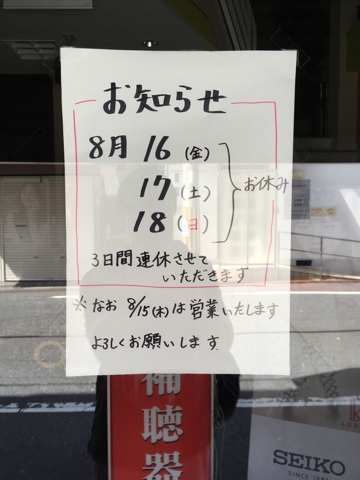 お知らせ
8月 16 (金)
17 (土)
18 (日)
お休み
3日間連休させて
いただきます
※なお 8/15(木)は営業いたします
よろしくお願いします
補聴器
SEIKO